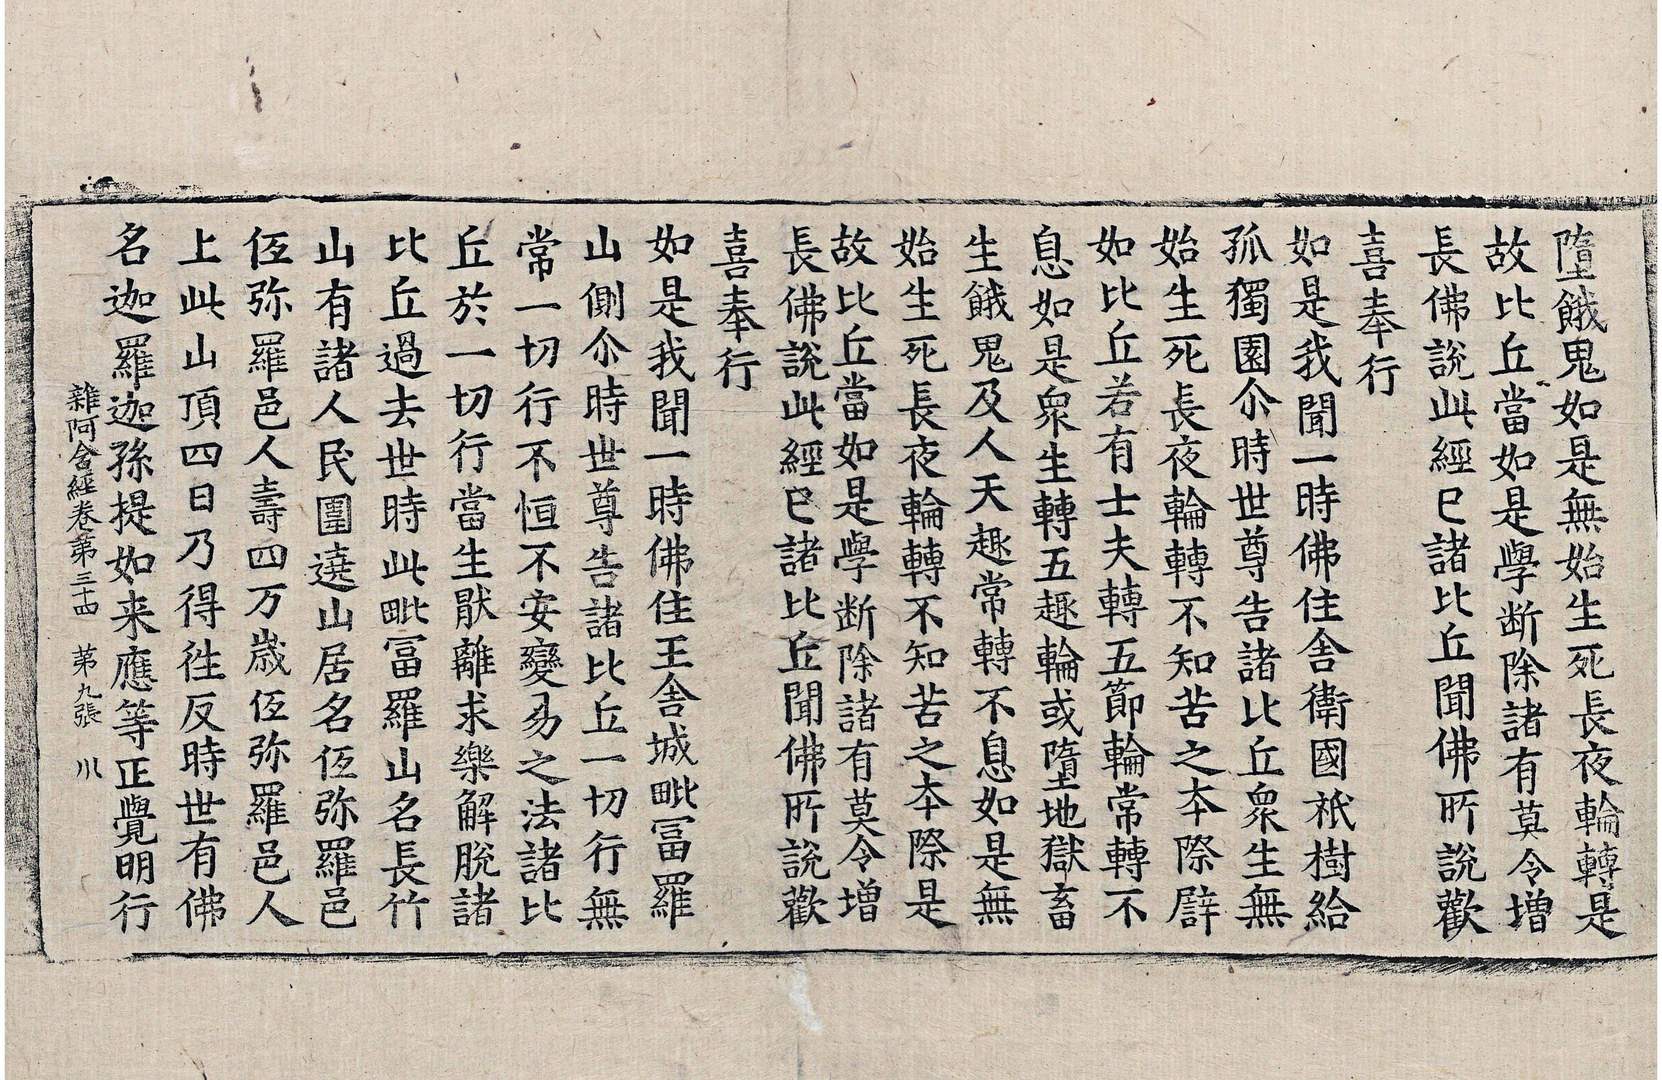 墮餓鬼如是無始生死長夜輪轉是
故比丘當如是學断除諸有莫令增
長佛說此經已諸比丘聞佛所說歡
喜奉行
如是我聞一時佛住舍衛國祇樹給
孤獨園尒時世尊告諸比丘衆生無
始生死長夜輪轉不知苦之本際譬
如比丘若有士夫轉五節輪常轉不
息如是衆生轉五趣輪或墮地獄畜
生餓鬼及人天趣常轉不息如是無
始生死長夜輪轉不知苦之本際是
故比丘當如是學断除諸有莫令增
長佛說此經已諸比丘聞佛所說歡
喜奉行
如是我聞一時佛住王舍城毗冨羅
山側尒時世尊告諸比丘一切行無
常一切行不恒不安變易之法諸比
丘於一切行當生猒離求樂解脫諸
比丘過去世時此毗冨羅山名長竹
山有諸人民圍遶山居名伭弥羅邑
伭弥羅邑人壽四万歲伭弥羅邑人
上此山頂四日乃得往反時世有佛
名迦羅迦孫提如来應等正覺明行
雜阿含經卷第三十四 第九張 川